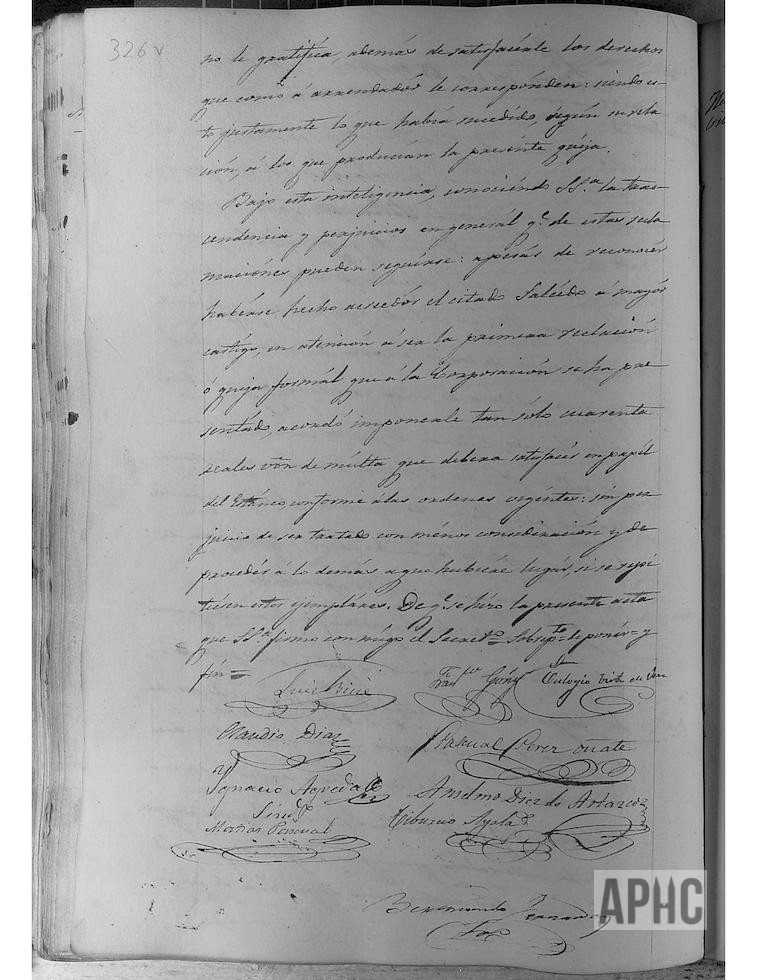 326 v
no le gratifica, además de satisfacérle los derechos
que como á arrendadór le correspónden: siendo es-
to justamente lo que había sucedido, según su rela
ción, á los que producian la presénte quéja.
Bajo esta inteligencia, conociéndo SSª la tras-
cendencia y perjuicios en generál qe de estas recla
maciónes pueden seguirse: apesár de reconocér
habérse hecho acreedór el citado Salcédo á mayór
castigo, en atención á ser la primera reclación
ó queja formál que á la Corporación se ha pre
sentádo, acordó imponerle tan sólo cuarenta
reales von de múlta que deberá satisfacér en papél
del Estánco, conforme á las ordenes vigéntes: sin per
juicio de ser tratado con ménos consideración y de
procedér á lo demás a que hubiére lugár, si se repi
tiesen estos ejempláres. De qe se hizo la presente acta
que SSª firmó con migo el Secreto =
fin =
Luis
Eulogio
Claudio Diaz
Pascual Perez Oñate
Ignacio Agreda
Anselmo Diez de Artazcoz
Matias Pascual
Tiburcio Ayala
Bermundo
APHC